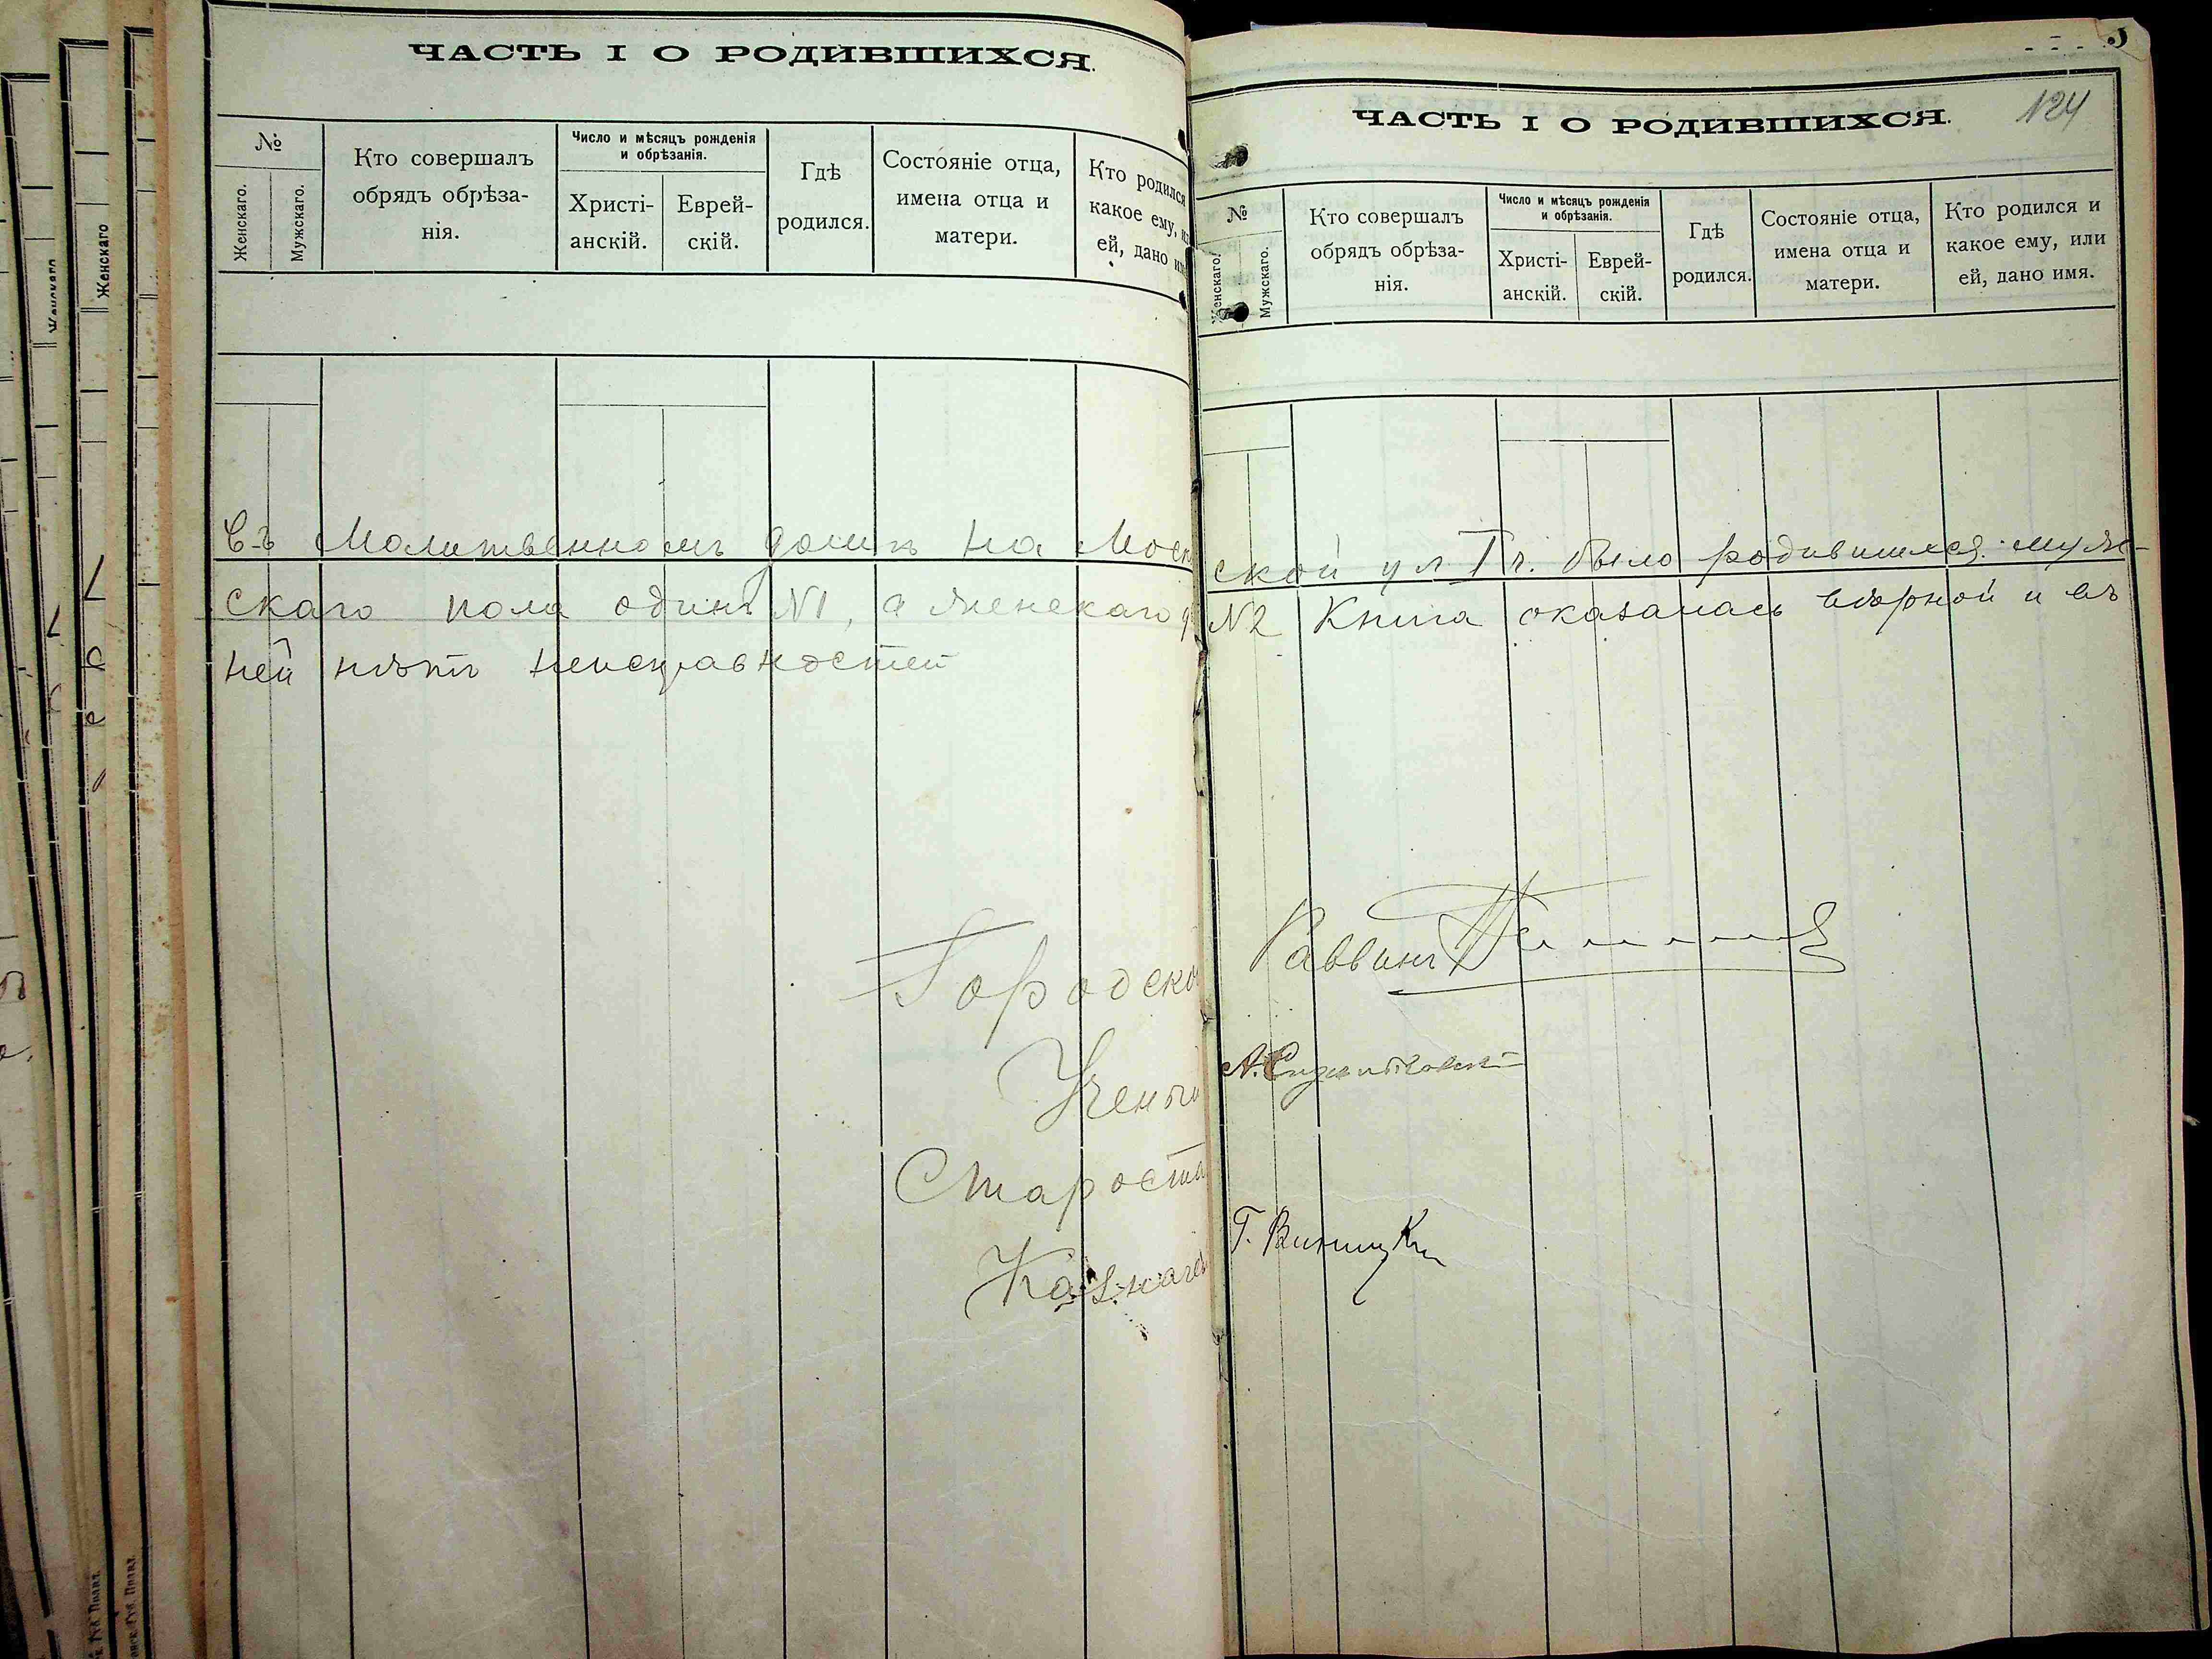 ЧАСТЬ I О РОДИВШИХСЯ.
№
Женскаго.
Мужскаго.
Кто совершалъ
обрядъ обрѣза-
нія.
Число и мѣсяцъ рожденія
и обрѣзанія.
Христі-
анскій.
Еврей-
скій.
Гдѣ
родился.
Состояніе отца,
имена отца и
матери.
Кто родился
какое ему,
ей, дано
ЧАСТЬ I О РОДИВШИХСЯ.
124
№
Женскаго.
Мужскаго.
Кто совершалъ
обрядъ обрѣза-
нія.
Число и мѣсяцъ рожденія
и обрѣзанія.
Христі-
анскій.
Еврей-
скій.
Гдѣ
родился.
Состояніе отца,
имена отца и
матери.
Кто родился и
какое ему, или
ей, дано имя.
Въ Молитвенномъ домѣ на Моск
ской ул было родившихся муж-
скаго пола одинъ №1, а женскаго
№2 Книга оказалась вѣрной и въ
ней нѣтъ неисправностей
Городской Раввинъ
Ученый А.
Староста Г. Виницкій
Казначей
Женскаго